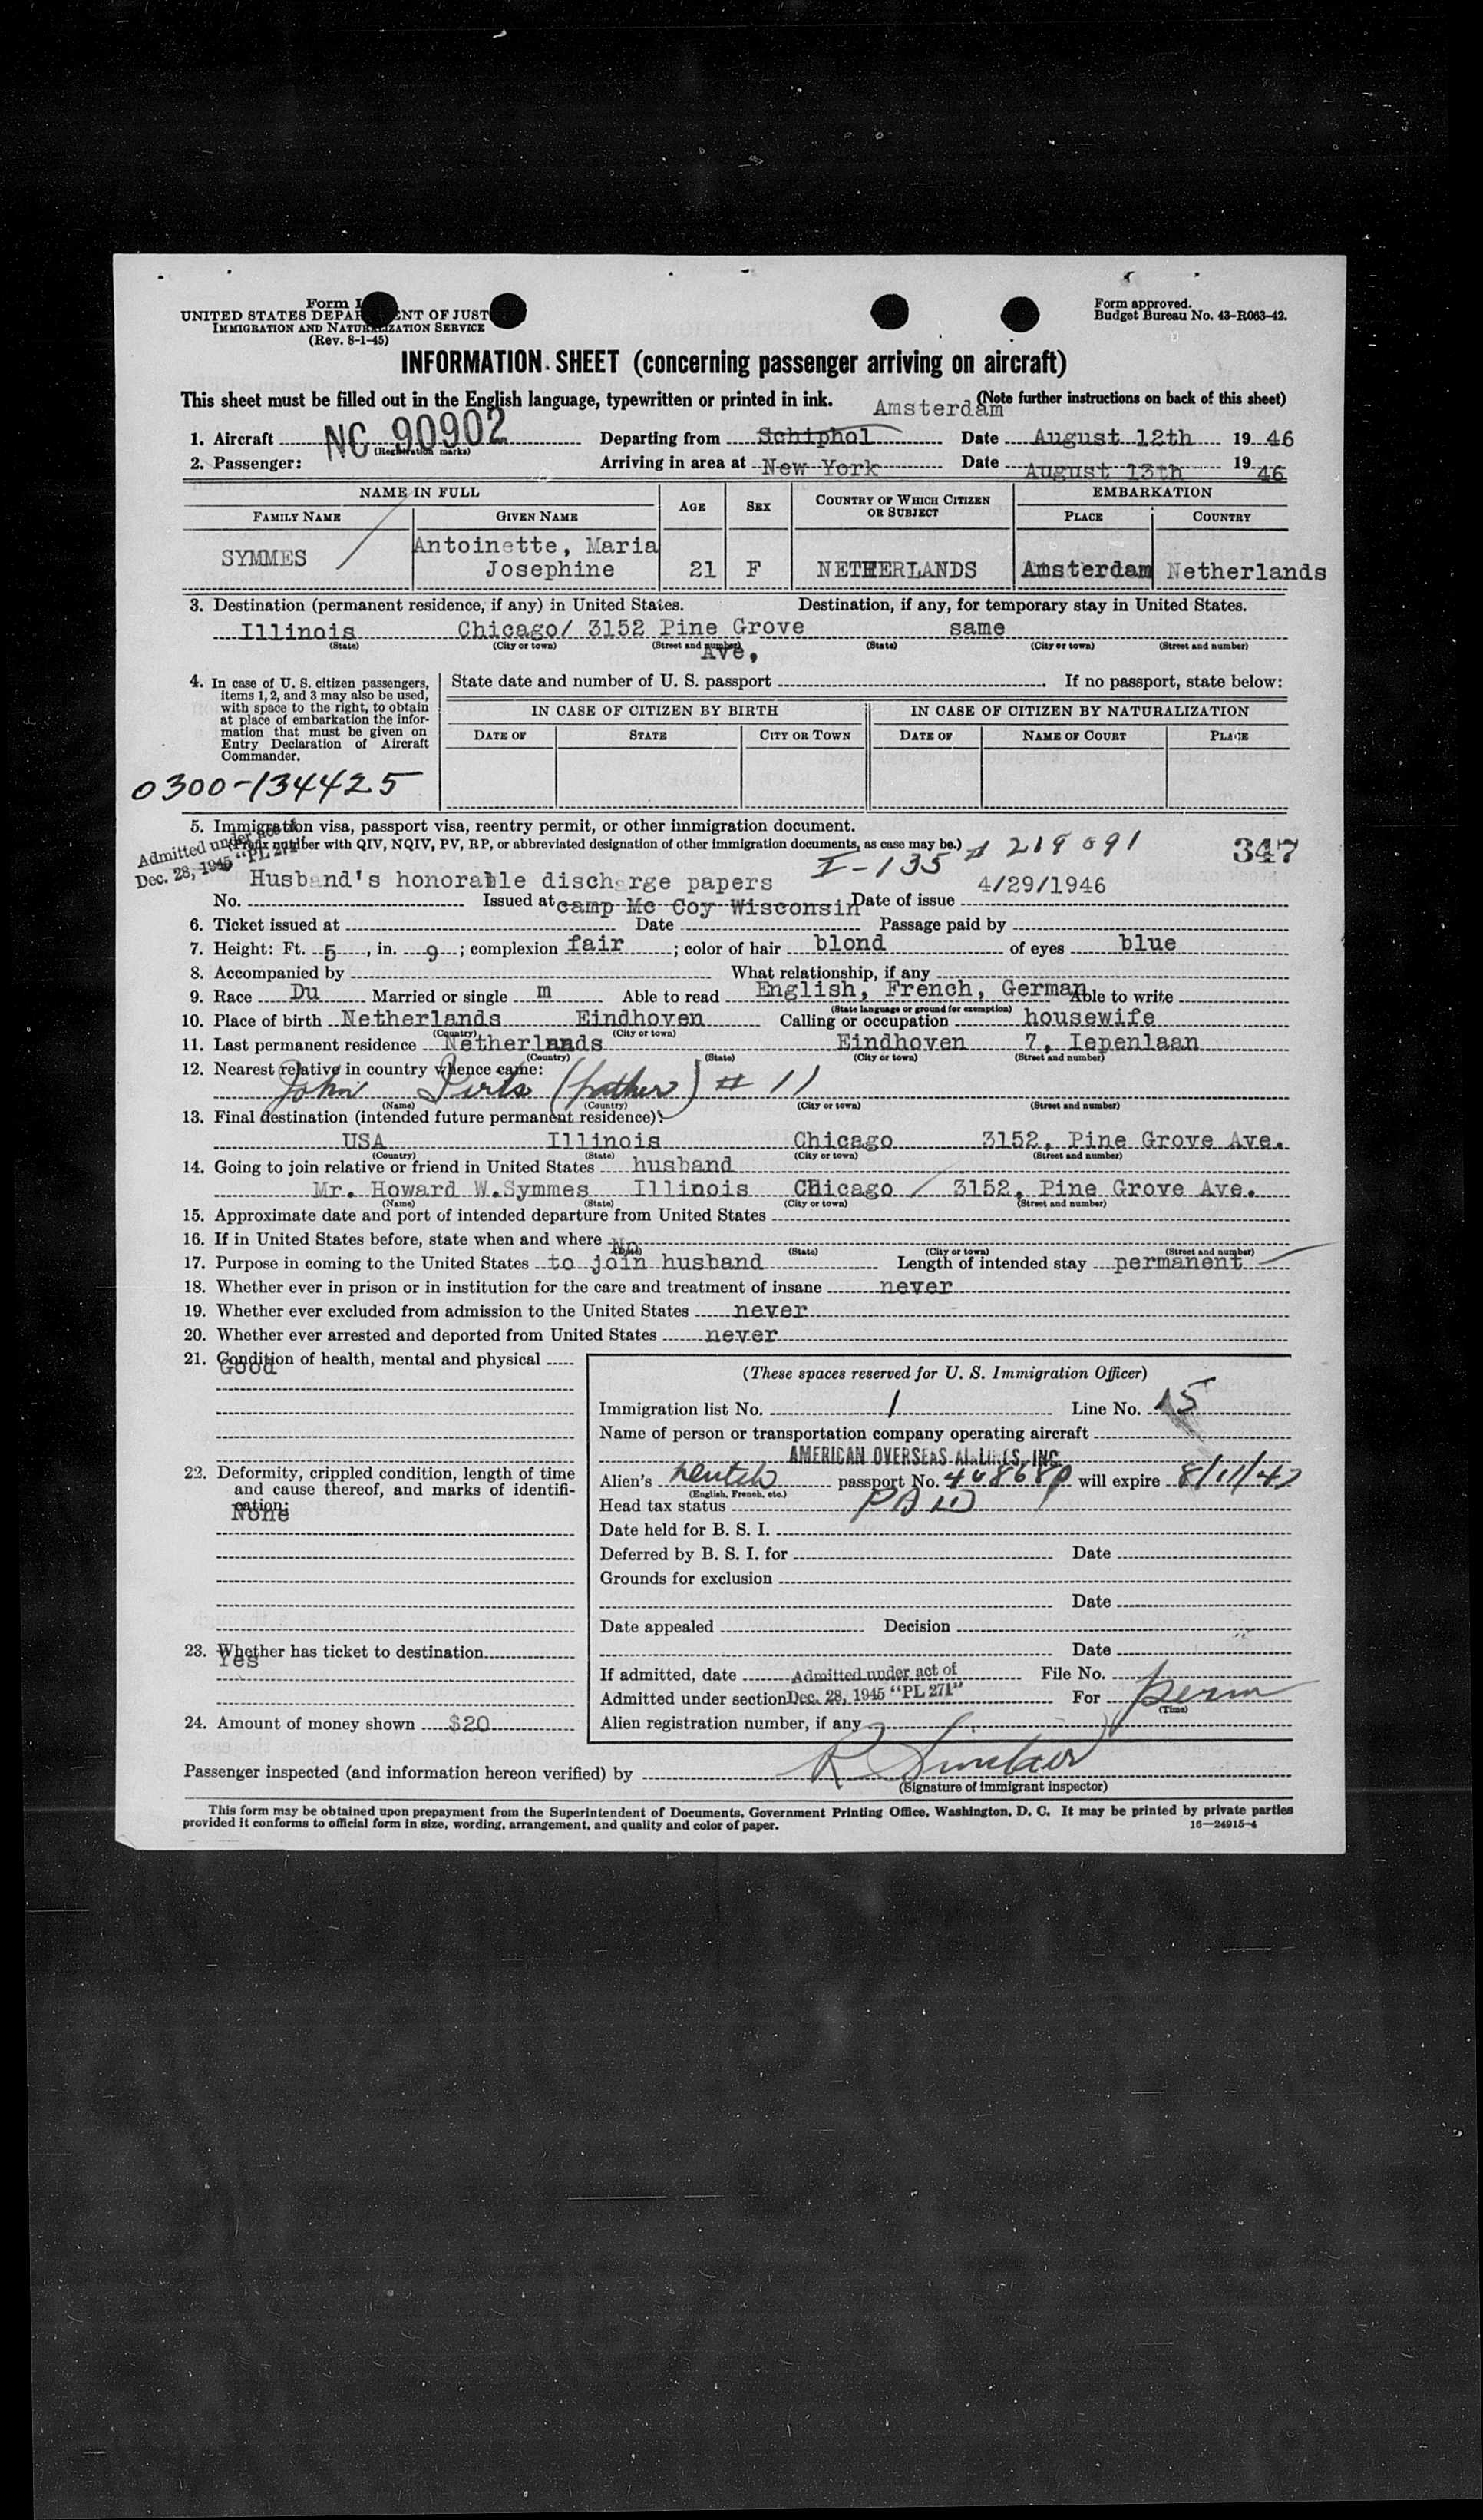 Form I
UNITED STATES DEPARTMENT OF JUST
IMMIGRATION AND NATURALIZATION SERVICE
(Rev. 8-1-45)
Form approved.
Budget Bureau No. 43-R063-42.
INFORMATION SHEET (concerning passenger arriving on aircraft)
This sheet must be filled out in the English language, typewritten or printed in ink. (Note further instructions on back of this sheet)
Amsterdam
1. Aircraft NC 90902 Departing from Schiphol Date August 12th 19 46
(Registration marks)
2. Passenger: Arriving in area at New York Date August 13th 19 46
NAME IN FULL AGE SEX COUNTRY OF WHICH CITIZEN OR SUBJECT EMBARKATION
FAMILY NAME GIVEN NAME PLACE COUNTRY
SYMMES Antoinette, Maria Josephine 21 F NETHERLANDS Amsterdam Netherlands
3. Destination (permanent residence, if any) in United States. Destination, if any, for temporary stay in United States.
Illinois Chicago/ 3152 Pine Grove Ave, same
(State) (City or town) (Street and number) (State) (City or town) (Street and number)
4. In case of U. S. citizen passengers, items 1, 2, and 3 may also be used, with space to the right, to obtain at place of embarkation the information that must be given on Entry Declaration of Aircraft Commander.
State date and number of U. S. passport If no passport, state below:
IN CASE OF CITIZEN BY BIRTH IN CASE OF CITIZEN BY NATURALIZATION
DATE OF STATE CITY OR TOWN DATE OF NAME OF COURT PLACE
0300-134425
5. Immigration visa, passport visa, reentry permit, or other immigration document.
(Prefix number with QIV, NQIV, PV, RP, or abbreviated designation of other immigration documents, as case may be.)
Admitted under act of
Dec. 28, 1945 "PL 271"
I-135 # 219091
347
Husband's honorable discharge papers 4/29/1946
No. Issued at camp Mc Coy Wisconsin Date of issue
6. Ticket issued at Date Passage paid by
7. Height: Ft. 5, in. 9; complexion fair; color of hair blond of eyes blue
8. Accompanied by What relationship, if any
9. Race Du Married or single m Able to read English, French, German Able to write
(State language or ground for exemption)
10. Place of birth Netherlands Eindhoven Calling or occupation housewife
(Country) (City or town)
11. Last permanent residence Netherlands Eindhoven 7, Iepenlaan
(Country) (State) (City or town) (Street and number)
12. Nearest relative in country whence came:
John (father) # 11
(Name) (Country) (City or town) (Street and number)
13. Final destination (intended future permanent residence):
USA Illinois Chicago 3152, Pine Grove Ave.
(Country) (State) (City or town) (Street and number)
14. Going to join relative or friend in United States husband
Mr. Howard W.Symmes Illinois Chicago 3152, Pine Grove Ave.
(Name) (State) (City or town) (Street and number)
15. Approximate date and port of intended departure from United States
16. If in United States before, state when and where No
(Date) (State) (City or town) (Street and number)
17. Purpose in coming to the United States to join husband Length of intended stay permanent
18. Whether ever in prison or in institution for the care and treatment of insane never
19. Whether ever excluded from admission to the United States never
20. Whether ever arrested and deported from United States never
21. Condition of health, mental and physical
Good
22. Deformity, crippled condition, length of time and cause thereof, and marks of identification:
None
23. Whether has ticket to destination
Yes
24. Amount of money shown $20
(These spaces reserved for U. S. Immigration Officer)
Immigration list No. 1 Line No. 15
Name of person or transportation company operating aircraft
AMERICAN OVERSEAS AIRLINES, INC.
Alien's passport No. will expire 8/11/47
(English, French, etc.)
Head tax status PAID
Date held for B. S. I.
Deferred by B. S. I. for Date
Grounds for exclusion
Date
Date appealed Decision
Date
If admitted, date Admitted under act of File No.
Admitted under section Dec. 28, 1945 "PL 271" For perm
(Time)
Alien registration number, if any
Passenger inspected (and information hereon verified) by R Sinclair
(Signature of immigrant inspector)
This form may be obtained upon prepayment from the Superintendent of Documents, Government Printing Office, Washington, D. C. It may be printed by private parties
provided it conforms to official form in size, wording, arrangement, and quality and color of paper. 16—24915-4